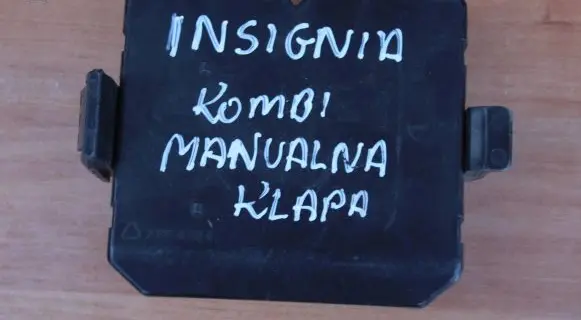 INSIGNIA
KOMBI
MANUALNA
KLAPA